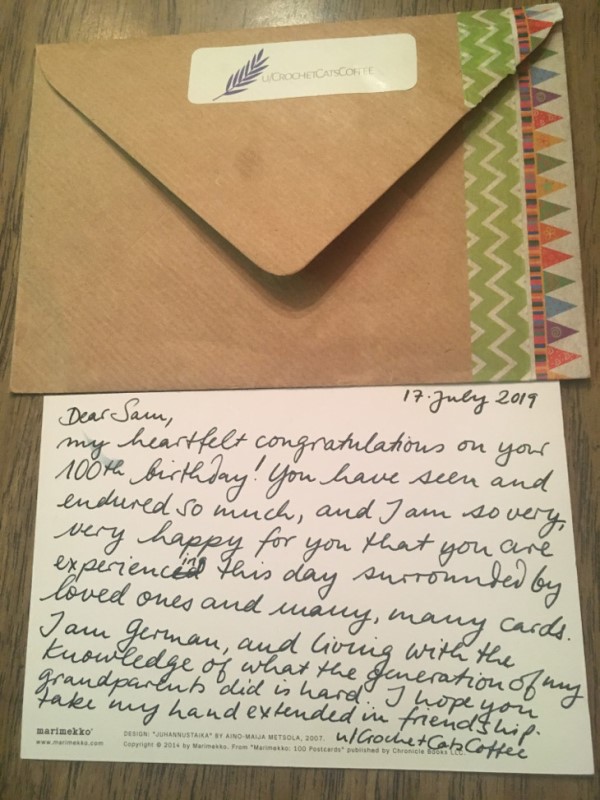 u/CrochetCatsCoffee
17. July 2019
Dear Sam,
my heartfelt congratulations on your
100th birthday! You have seen and
endured so much, and I am so very,
very happy for you that you are
experiencing this day surrounded by
loved ones and many, many cards.
I am German, and living with the
knowledge of what the generation of my
grandparents did is hard. I hope you
take my hand extended in friendship.
u/CrochetCatsCoffee
marimekko®
www.marimekko.com
DESIGN: "JUHANNUSTAIKA" BY AINO-MAIJA METSOLA, 2007.
Copyright © 2014 by Marimekko. From "Marimekko: 100 Postcards" published by Chronicle Books LLC.